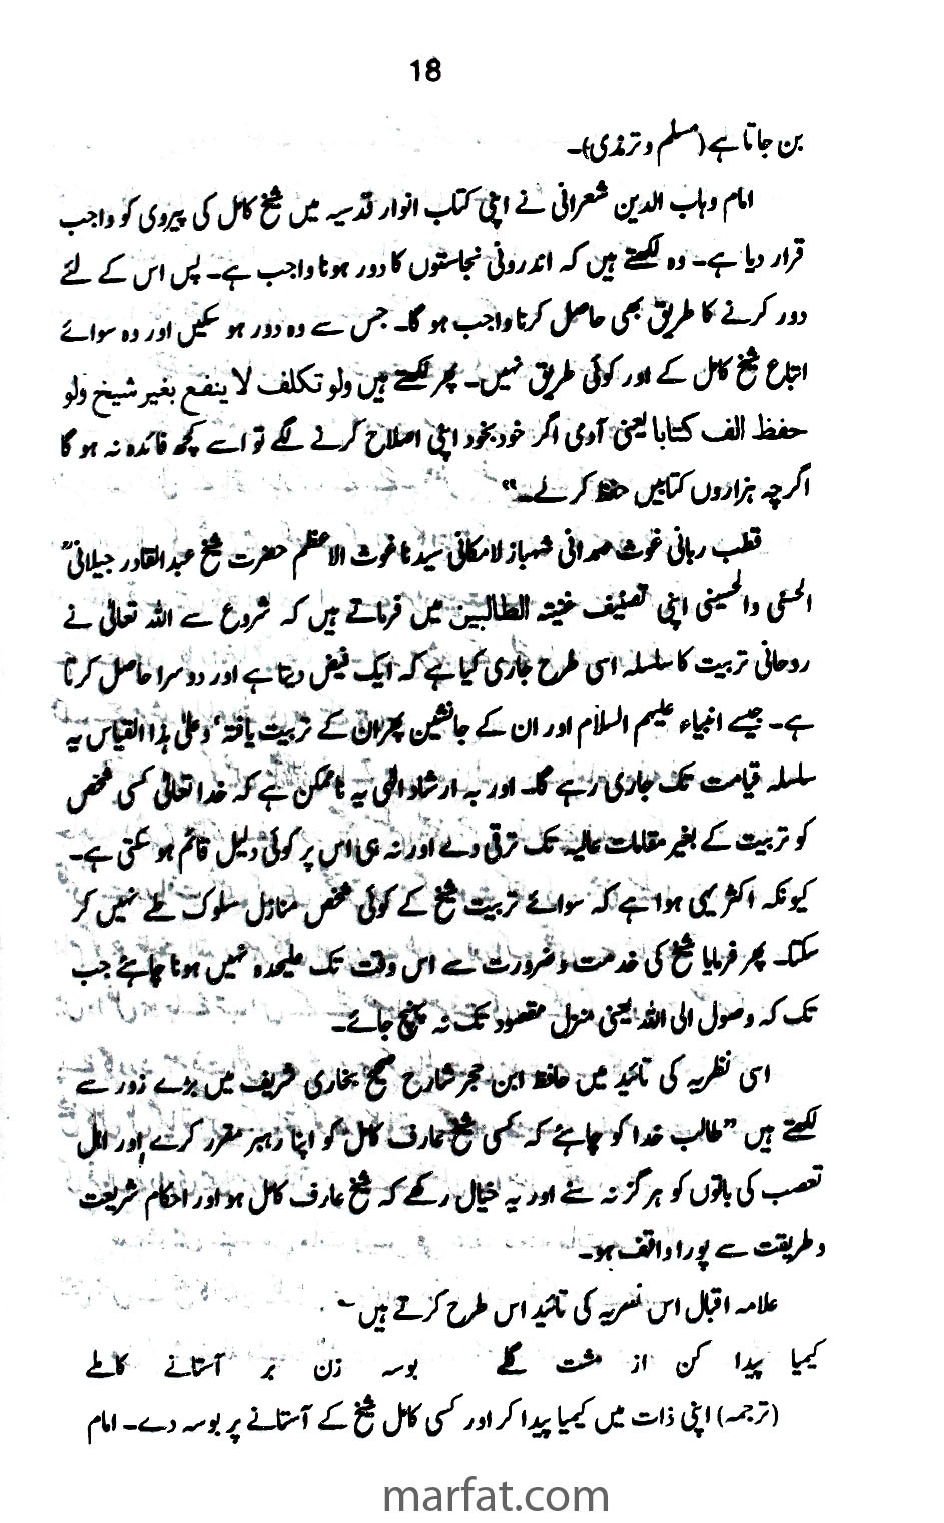 18
بن جاتا ہے (مسلم و ترمذی)۔
امام وہاب الدین شعرانی نے اپنی کتاب انوار قدسیہ میں شیخ کامل کی پیروی کو واجب
قرار دیا ہے۔ وہ لکھتے ہیں کہ اندرونی نجاستوں کا دور ہونا واجب ہے۔ پس اس کے لئے
دور کرنے کا طریق بھی حاصل کرنا واجب ہو گا۔ جس سے وہ دور ہو سکیں اور وہ سوائے
اتباع شیخ کامل کے اور کوئی طریق نہیں۔ پھر لکھتے ہیں ولو تکلف لا ینفع بغیر شیخ ولو
حفظ الف کتابا یعنی آدمی اگر خود بخود اپنی اصلاح کرنے لگے تو اسے کچھ فائدہ نہ ہو گا
اگرچہ ہزاروں کتابیں حفظ کر لے۔"
قطب ربانی غوث صمدانی شہباز لامکانی سیدنا غوث الاعظم حضرت شیخ عبدالقادر جیلانیؒ
الحسنی والحسینی اپنی تصنیف غنیتہ الطالبین میں فرماتے ہیں کہ شروع سے اللہ تعالیٰ نے
روحانی تربیت کا سلسلہ اسی طرح جاری کیا ہے کہ ایک فیض دیتا ہے اور دوسرا حاصل کرتا
ہے۔ جیسے انبیاء علیہم السلام اور ان کے جانشین پھر ان کے تربیت یافتہ' وعلیٰ ہذا القیاس یہ
سلسلہ قیامت تک جاری رہے گا۔ اور بہ ارشاد الٰہی یہ ناممکن ہے کہ خدا تعالیٰ کسی شخص
کو تربیت کے بغیر مقامات عالیہ تک ترقی دے اور نہ ہی اس پر کوئی دلیل قائم ہو سکتی ہے۔
کیونکہ اکثر یہی ہوا ہے کہ سوائے تربیت شیخ کے کوئی شخص منازل سلوک طے نہیں کر
سکتا۔ پھر فرمایا شیخ کی خدمت و ضرورت سے اس وقت تک علیحدہ نہیں ہونا چاہئے جب
تک کہ وصول الی اللہ یعنی منزل مقصود تک نہ پہنچ جائے۔
اسی نظریہ کی تائید میں حافظ ابن حجر شارح صحیح بخاری شریف میں بڑے زور سے
لکھتے ہیں "طالب خدا کو چاہئے کہ کسی شیخ عارف کامل کو اپنا رہبر مقرر کرے اور اہل
تعصب کی باتوں کو ہرگز نہ سنے اور یہ خیال رکھے کہ شیخ عارف کامل ہو اور احکام شریعت
و طریقت سے پورا واقف ہو۔
علامہ اقبال اس نظریہ کی تائید اس طرح کرتے ہیں ؎
کیمیا پیدا کن از مشت گلے بوسہ زن بر آستانے کاملے
(ترجمہ) اپنی ذات میں کیمیا پیدا کر اور کسی کامل شیخ کے آستانے پر بوسہ دے۔ امام
marfat.com